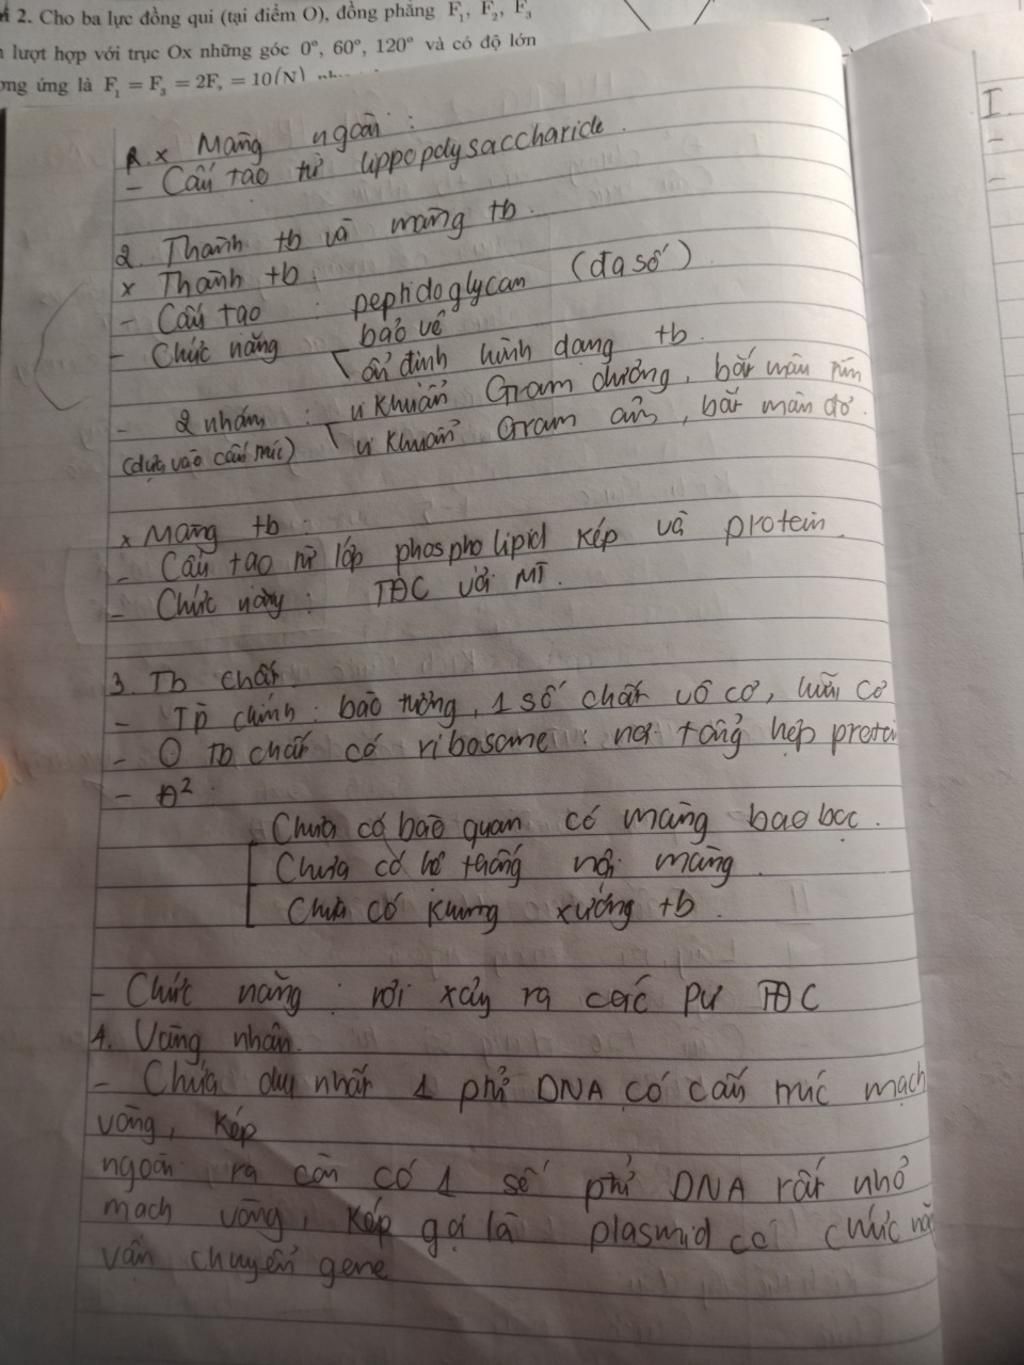 2. Cho ba lực đồng qui (tại điểm O), đồng phẳng F₁, F₂, F₃
lượt hợp với trục Ox những góc 0°, 60°, 120° và có độ lớn
ứng là F₁ = F₃ = 2F₂ = 10(N)
x Màng ngoài :
- Cấu tạo từ lippopolysaccharide.
2. Thành tb và màng tb.
x Thành tb :
- Cấu tạo : peptidoglycan (đa số)
- Chức năng bảo vệ
ổn định hình dạng tb.
- 2 nhóm : vi khuẩn Gram dương, bắt màu tím
(dựa vào cấu trúc) vi khuẩn Gram âm, bắt màu đỏ.
x Màng tb :
- Cấu tạo từ lớp phospholipid kép và protein.
- Chức năng : TĐC với MT.
3. Tb chất
- TP chính : bào tương, 1 số chất vô cơ, hữu cơ
- Ở Tb chất có ribosome : nơi tổng hợp protein
- Đ² :
Chưa có bào quan có màng bao bọc.
Chưa có hệ thống nội màng.
Chưa có khung xương tb.
- Chức năng : nơi xảy ra các pư TĐC
4. Vùng nhân.
- Chứa duy nhất 1 ptử DNA có cấu trúc mạch
vòng, kép
ngoài ra còn có 1 số ptử DNA rất nhỏ
mạch vòng, kép gọi là plasmid có chức năng
vận chuyển gene
I.
-
-